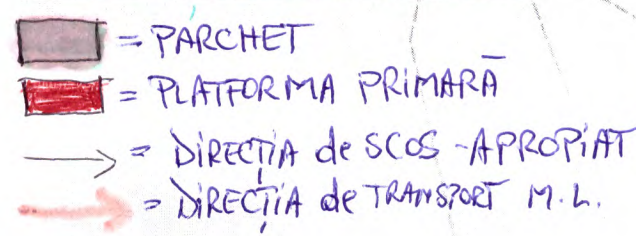 = PARCHET
= PLATFORMA PRIMARĂ
= DIRECȚIA de SCOS-APROPIAT
= DIRECȚIA de TRANSPORT M.L.